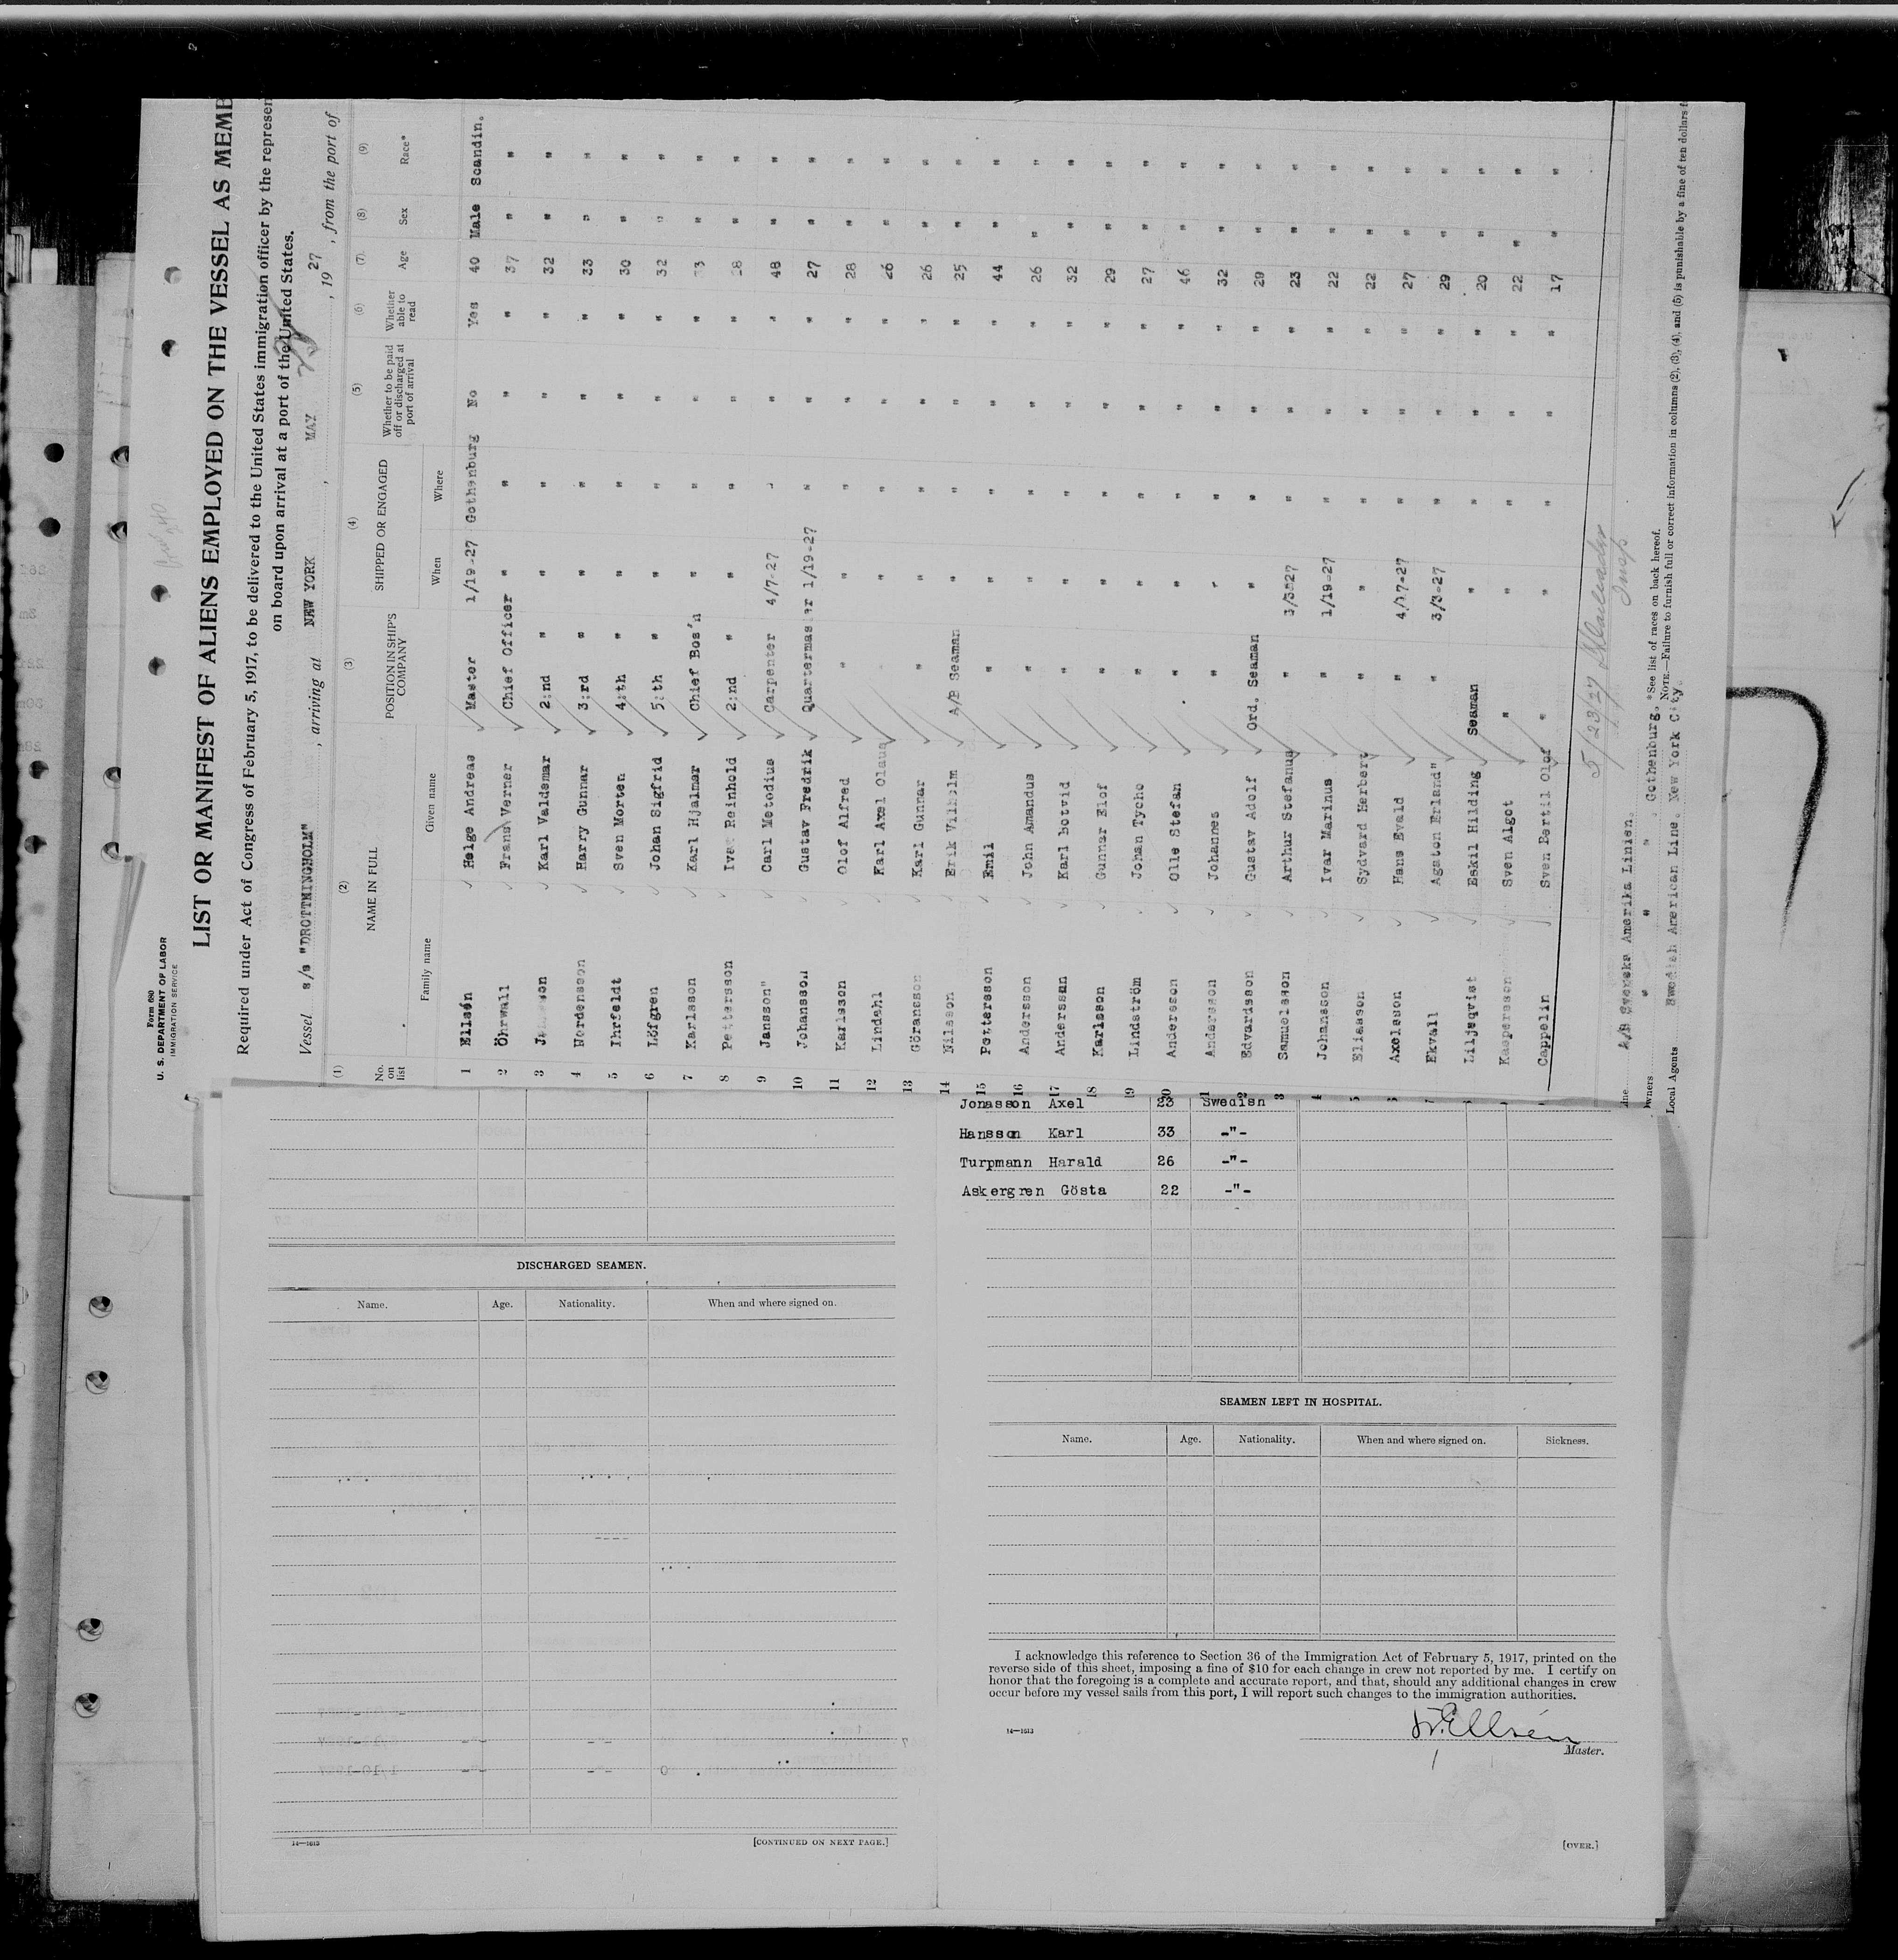 Form 680
U. S. DEPARTMENT OF LABOR
IMMIGRATION SERVICE
LIST OR MANIFEST OF ALIENS EMPLOYED ON THE VESSEL AS MEMB
Required under Act of Congress of February 5, 1917, to be delivered to the United States immigration officer by the represen
on board upon arrival at a port of the United States.
Vessel s/s "DROTTNINGHOLM" , arriving at NEW YORK , MAY , 19 27 , from the port of
(1) (2) (3) (4) (5) (6) (7) (8) (9)
No. on list NAME IN FULL POSITION IN SHIP'S COMPANY SHIPPED OR ENGAGED Whether to be paid off or discharged at port of arrival Whether able to read Age Sex Race*
Family name Given name When Where
1 Ellsén Helge Andreas Master 1/19-27 Gothenburg No Yes 40 Male Scandin.
2 Öhrwall Frans Verner Chief Officer " " " " 37 " "
3 Karl Valdemar 2:nd " " " " " 32 " "
4 Nordensson Harry Gunnar 3:rd " " " " " 33 " "
5 Ihrfeldt Sven Morten 4:th " " " " " 30 " "
6 Löfgren Johan Sigfrid 5:th " " " " " 32 " "
7 Karlsson Karl Hjalmar Chief Bos'n " " " " 33 " "
8 Pettersson Ivar Reinhold 2:nd " " " " " 28 " "
9 Jansson" Carl Metodius Carpenter 4/7-27 " " " 48 " "
10 Johansson Gustav Fredrik Quartermaster 1/19-27 " " " 27 " "
11 Karlsson Olof Alfred " " " " " 28 " "
12 Lindahl Karl Axel Olaus " " " " 26 " "
13 Göransson Karl Gunnar " " " " " 26 " "
14 Nilsson Erik Vilhelm A/B Seaman " " " " 25 " "
15 Pettersson Emil " " " " " 44 " "
16 Andersson John Amandus " " " " " 26 " "
17 Andersson Karl Botvid " " " " " 32 " "
18 Karlsson Gunnar Elof " " " " " 29 " "
19 Lindström Johan Tycho " " " " " 27 " "
20 Andersson Olle Stefan " " " " " 46 " "
1 Andersson Johannes " " " " " 32 " "
2 Edvardsson Gustav Adolf Ord. Seaman " " " " 29 " "
3 Samuelsson Arthur Stefanus " 3/3-27 " " " 23 " "
4 Johansson Ivar Marinus " 1/19-27 " " " 22 " "
5 Eliasson Sydvard Herbert " " " " " 22 " "
Axelsson Hans Evald " " " " 27 " "
7 Ekvall Agaton Erland" " 3/3-27 " " " 29 " "
Liljeqvist Eskil Hilding Seaman " " " " 20 " "
Kaspersson Sven Algot " " " " " 22 " "
Cappelin Sven Bertil Olof " " " " " 17 " "
5/23/27
Insp
Line A/B Svenska Amerika Linien.
Owners " " " . Gothenburg.
Local Agents Swedish American Line. New York City.
*See list of races on back hereof.
NOTE.—Failure to furnish full or correct information in columns (2), (3), (4), and (5) is punishable by a fine of ten dollars f
DISCHARGED SEAMEN.
Name. Age. Nationality. When and where signed on.
14—1613
[CONTINUED ON NEXT PAGE.]
Jonasson Axel 23 Swedish
Hansson Karl 33 -"-
Turpmann Harald 26 -"-
Askergren Gösta 22 -"-
SEAMEN LEFT IN HOSPITAL.
Name. Age. Nationality. When and where signed on. Sickness.
I acknowledge this reference to Section 36 of the Immigration Act of February 5, 1917, printed on the
reverse side of this sheet, imposing a fine of $10 for each change in crew not reported by me. I certify on
honor that the foregoing is a complete and accurate report, and that, should any additional changes in crew
occur before my vessel sails from this port, I will report such changes to the immigration authorities.
14—1613
Ellsén
Master.
[OVER.]